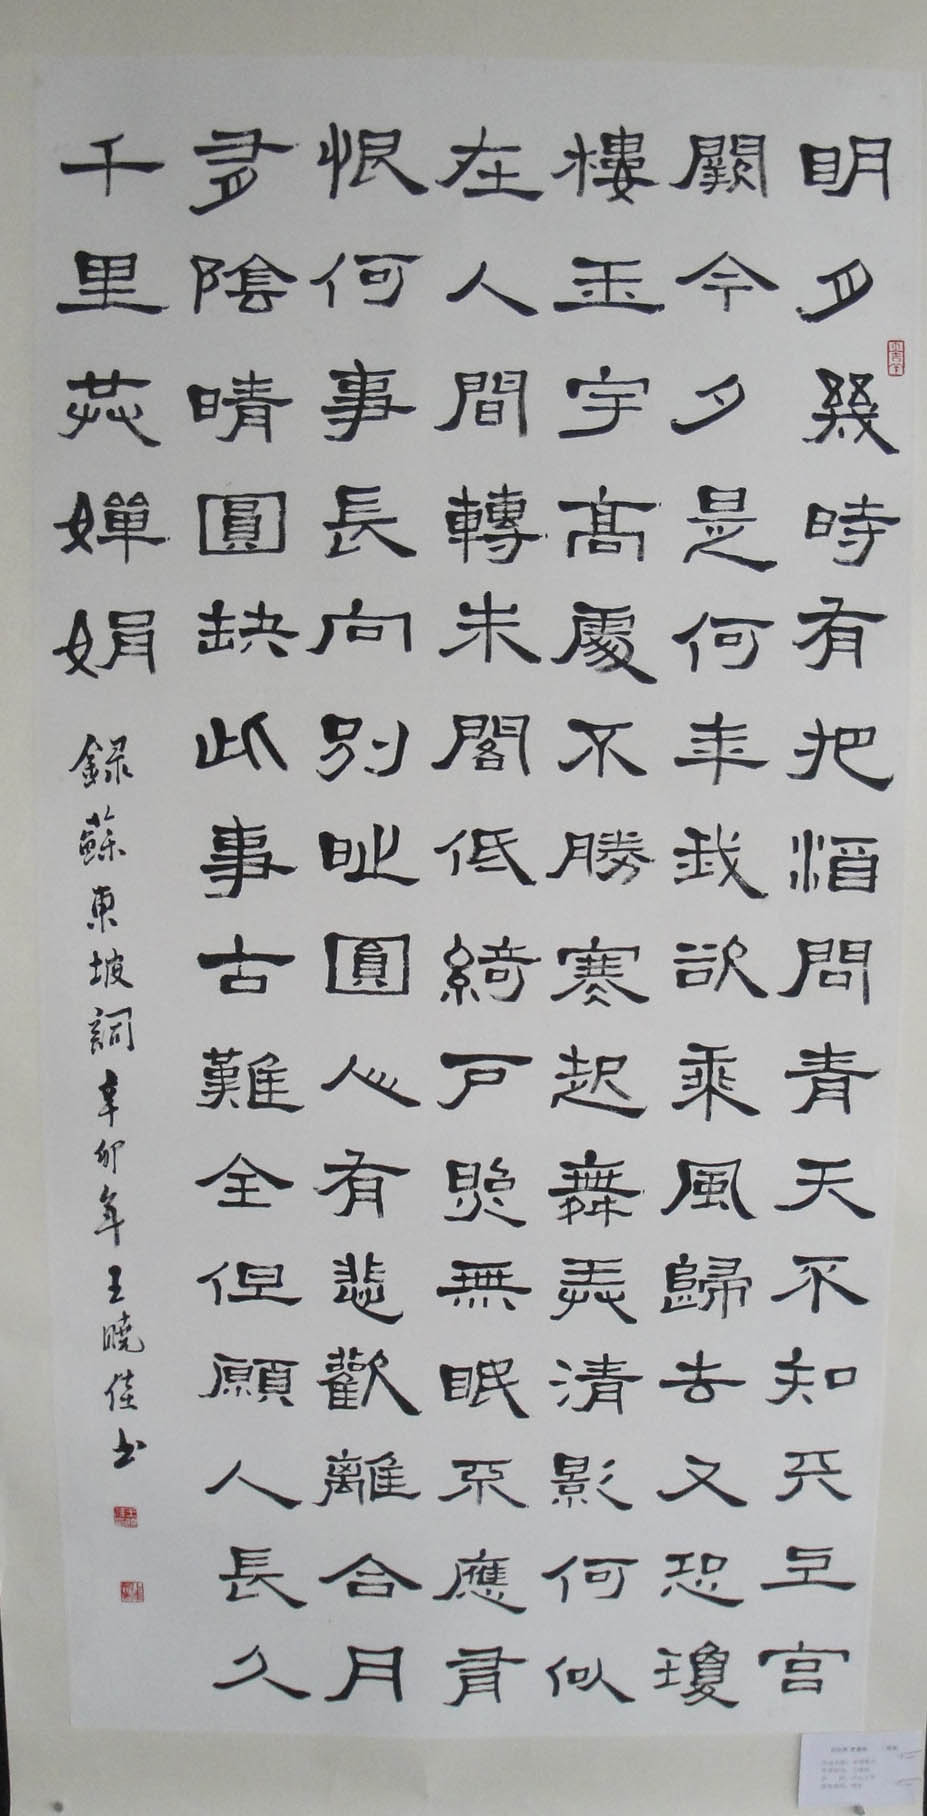 明月幾時有把酒問青天不知天上宮
闕今夕是何年我欲乘風歸去又恐瓊
樓玉宇高處不勝寒起舞弄清影何似
在人間轉朱閣低綺戶照無眠不應有
恨何事長向別時圓人有悲歡離合月
有陰晴圓缺此事古難全但願人長久
千里共嬋娟
録蘇東坡詞辛卯年王曉佳书